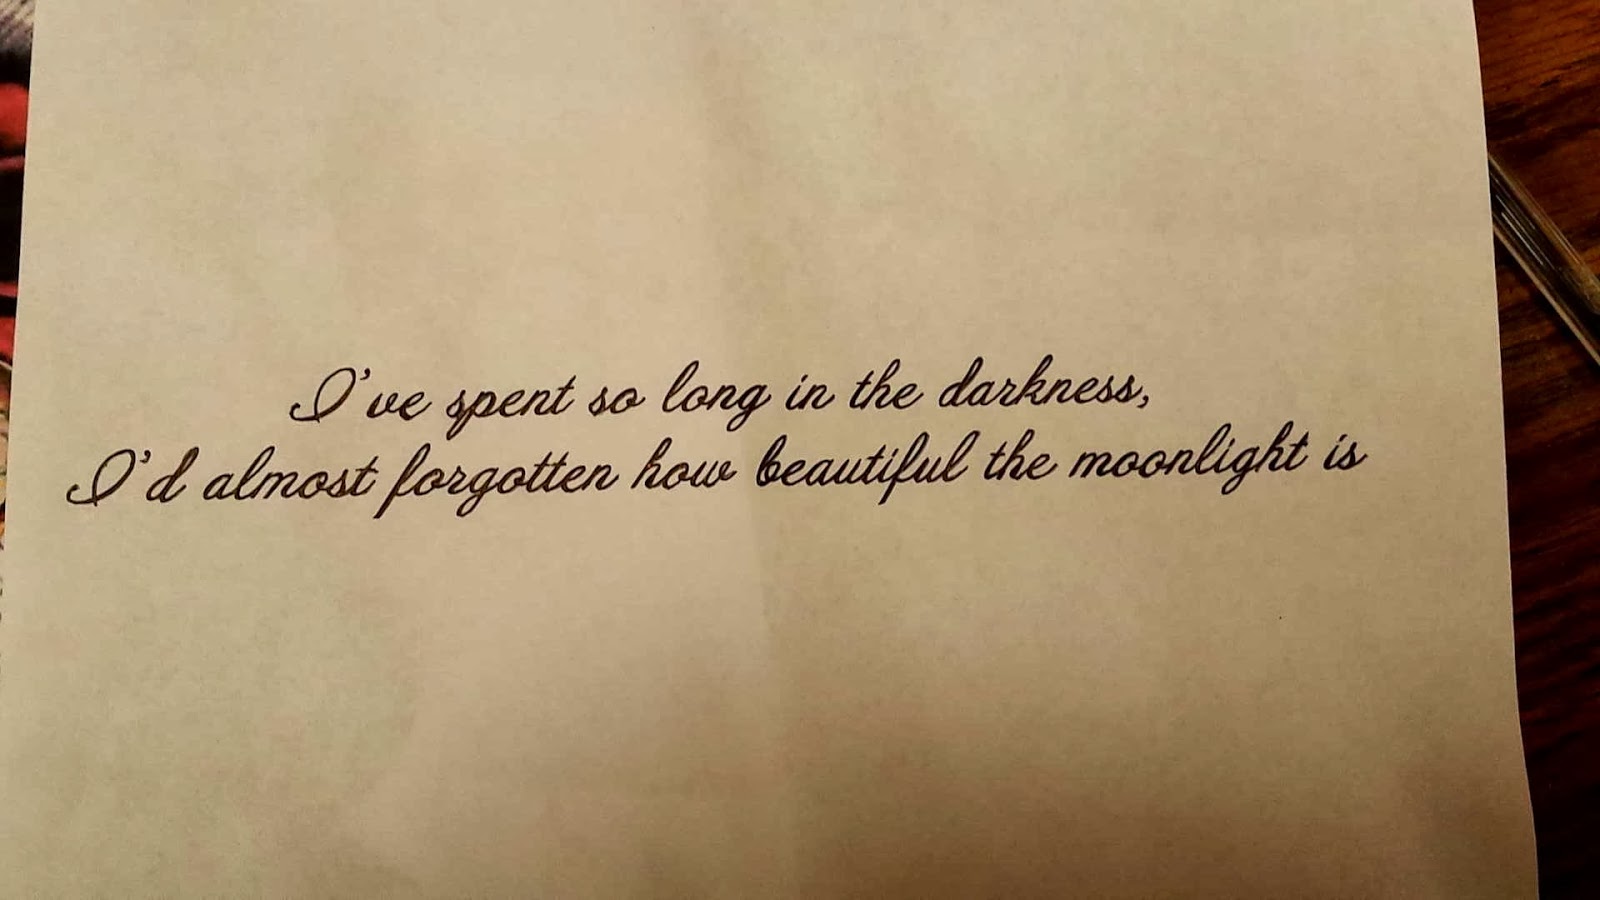 I've spent so long in the darkness,
I'd almost forgotten how beautiful the moonlight is